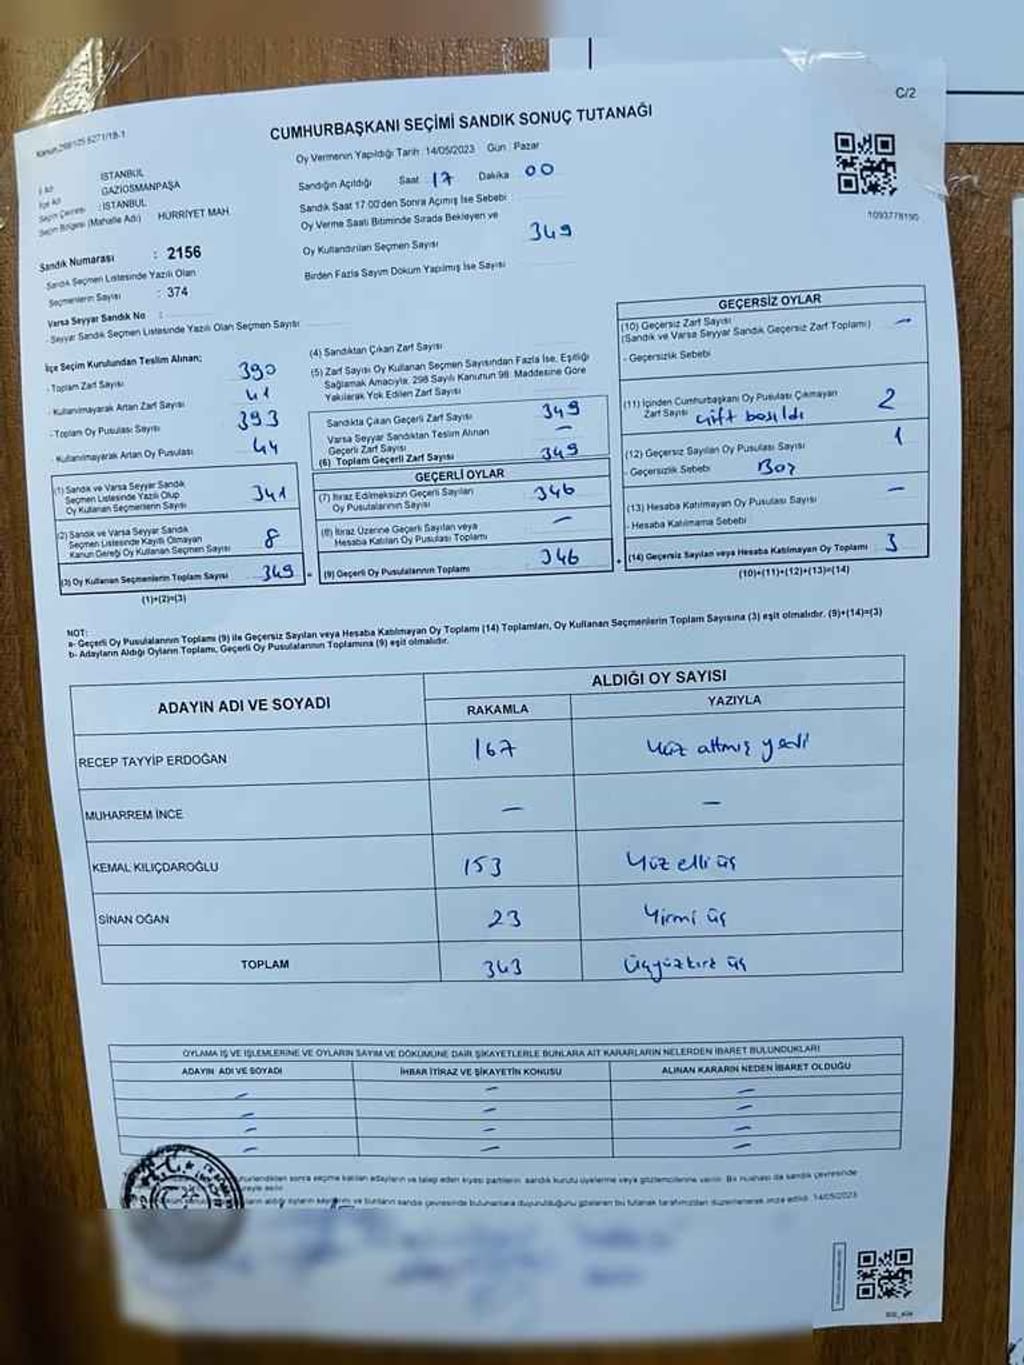 C/2
CUMHURBAŞKANI SEÇİMİ SANDIK SONUÇ TUTANAĞI
Oy Vermenin Yapıldığı Tarih :14/05/2023 Gün : Pazar
İSTANBUL
GAZİOSMANPAŞA
Seçim Çevresi : İSTANBUL
Seçim Bölgesi (Mahalle Adı) HÜRRİYET MAH.
Sandık Numarası : 2156
Sandık Seçmen Listesinde Yazılı Olan
Seçmenlerin Sayısı : 374
Varsa Seyyar Sandık No :
- Seyyar Sandık Seçmen Listesinde Yazılı Olan Seçmen Sayısı
Sandığın Açıldığı Saat 17 Dakika 00
Sandık Saat 17.00'den Sonra Açımış İse Sebebi
Oy Verme Saati Bitiminde Sırada Bekleyen ve
Oy Kullandırılan Seçmen Sayısı 349
Birden Fazla Sayım Döküm Yapılmış İse Sayısı
1093778190
İlçe Seçim Kurulundan Teslim Alınan;
- Toplam Zarf Sayısı 390
- Kullanılmayarak Artan Zarf Sayısı 41
- Toplam Oy Pusulası Sayısı 393
- Kullanılmayarak Artan Oy Pusulası 44
(1) Sandık ve Varsa Seyyar Sandık
Seçmen Listesinde Yazılı Olup
Oy Kullanan Seçmenlerin Sayısı 341
(2) Sandık ve Varsa Seyyar Sandık
Seçmen Listesinde Kayıtlı Olmayan
Kanun Gereği Oy Kullanan Seçmen Sayısı 8
(3) Oy Kullanan Seçmenlerin Toplam Sayısı 349 =
(1)+(2)=(3)
(4) Sandıktan Çıkan Zarf Sayısı
(5) Zarf Sayısı Oy Kullanan Seçmen Sayısından Fazla İse, Eşitliği
Sağlamak Amacıyla, 298 Sayılı Kanunun 98. Maddesine Göre
Yakılarak Yok Edilen Zarf Sayısı
Sandıkta Çıkan Geçerli Zarf Sayısı 349
Varsa Seyyar Sandıktan Teslim Alınan
Geçerli Zarf Sayısı –
(6) Toplam Geçerli Zarf Sayısı 349
GEÇERLİ OYLAR
(7) İtiraz Edilmeksizin Geçerli Sayılan
Oy Pusulalarının Sayısı 346
(8) İtiraz Üzerine Geçerli Sayılan veya
Hesaba Katılan Oy Pusulası Toplamı –
(9) Geçerli Oy Pusulalarının Toplamı 346 +
GEÇERSİZ OYLAR
(10) Geçersiz Zarf Sayısı –
(Sandık ve Varsa Seyyar Sandık Geçersiz Zarf Toplamı)
- Geçersizlik Sebebi
(11) İçinden Cumhurbaşkanı Oy Pusulası Çıkmayan
Zarf Sayısı çift basıldı 2
(12) Geçersiz Sayılan Oy Pusulası Sayısı 1
- Geçersizlik Sebebi Boz
(13) Hesaba Katılmayan Oy Pusulası Sayısı –
- Hesaba Katılmama Sebebi
(14) Geçersiz Sayılan veya Hesaba Katılmayan Oy Toplamı 3
(10)+(11)+(12)+(13)=(14)
NOT:
a- Geçerli Oy Pusulalarının Toplamı (9) ile Geçersiz Sayılan veya Hesaba Katılmayan Oy Toplamı (14) Toplamları, Oy Kullanan Seçmenlerin Toplam Sayısına (3) eşit olmalıdır. (9)+(14)=(3)
b- Adayların Aldığı Oyların Toplamı, Geçerli Oy Pusulalarının Toplamına (9) eşit olmalıdır.
ADAYIN ADI VE SOYADI ALDIĞI OY SAYISI
RAKAMLA YAZIYLA
RECEP TAYYİP ERDOĞAN 167 Yüz altmış yedi
MUHARREM İNCE – –
KEMAL KILIÇDAROĞLU 153 Yüz elli üç
SİNAN OĞAN 23 Yirmi üç
TOPLAM 343 Üçyüzkırk üç
OYLAMA İŞ VE İŞLEMLERİNE VE OYLARIN SAYIM VE DÖKÜMÜNE DAİR ŞİKAYETLERLE BUNLARA AİT KARARLARIN NELERDEN İBARET BULUNDUKLARI
ADAYIN ADI VE SOYADI İHBAR İTİRAZ VE ŞİKAYETİN KONUSU ALINAN KARARIN NEDEN İBARET OLDUĞU
– – –
– – –
– – –
– – –
sonra seçime katılan adayların ve talep eden siyasi partilerin sandık kurulu üyelerine veya gözlemcilerine verilir. Bir nüshası da sandık çevresinde
aldığı oyların sayılarını ve bunların sandık çevresinde bulunanlara duyurulduğunu gösteren bu tutanak tarafımızdan düzenlenerek imza edildi. 14/05/2023